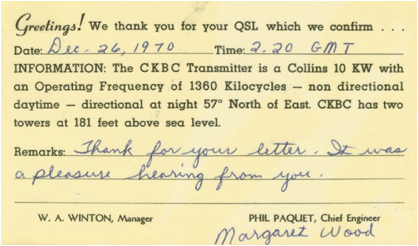 Greetings! We thank you for your QSL which we confirm . . .
Date: Dec. 26, 1970 Time: 2.20 GMT
INFORMATION: The CKBC Transmitter is a Collins 10 KW with
an Operating Frequency of 1360 Kilocycles — non directional
daytime — directional at night 57° North of East. CKBC has two
towers at 181 feet above sea level.
Remarks: Thank for your letter. It was
a pleasure hearing from you.
W. A. WINTON, Manager PHIL PAQUET, Chief Engineer
Margaret Wood